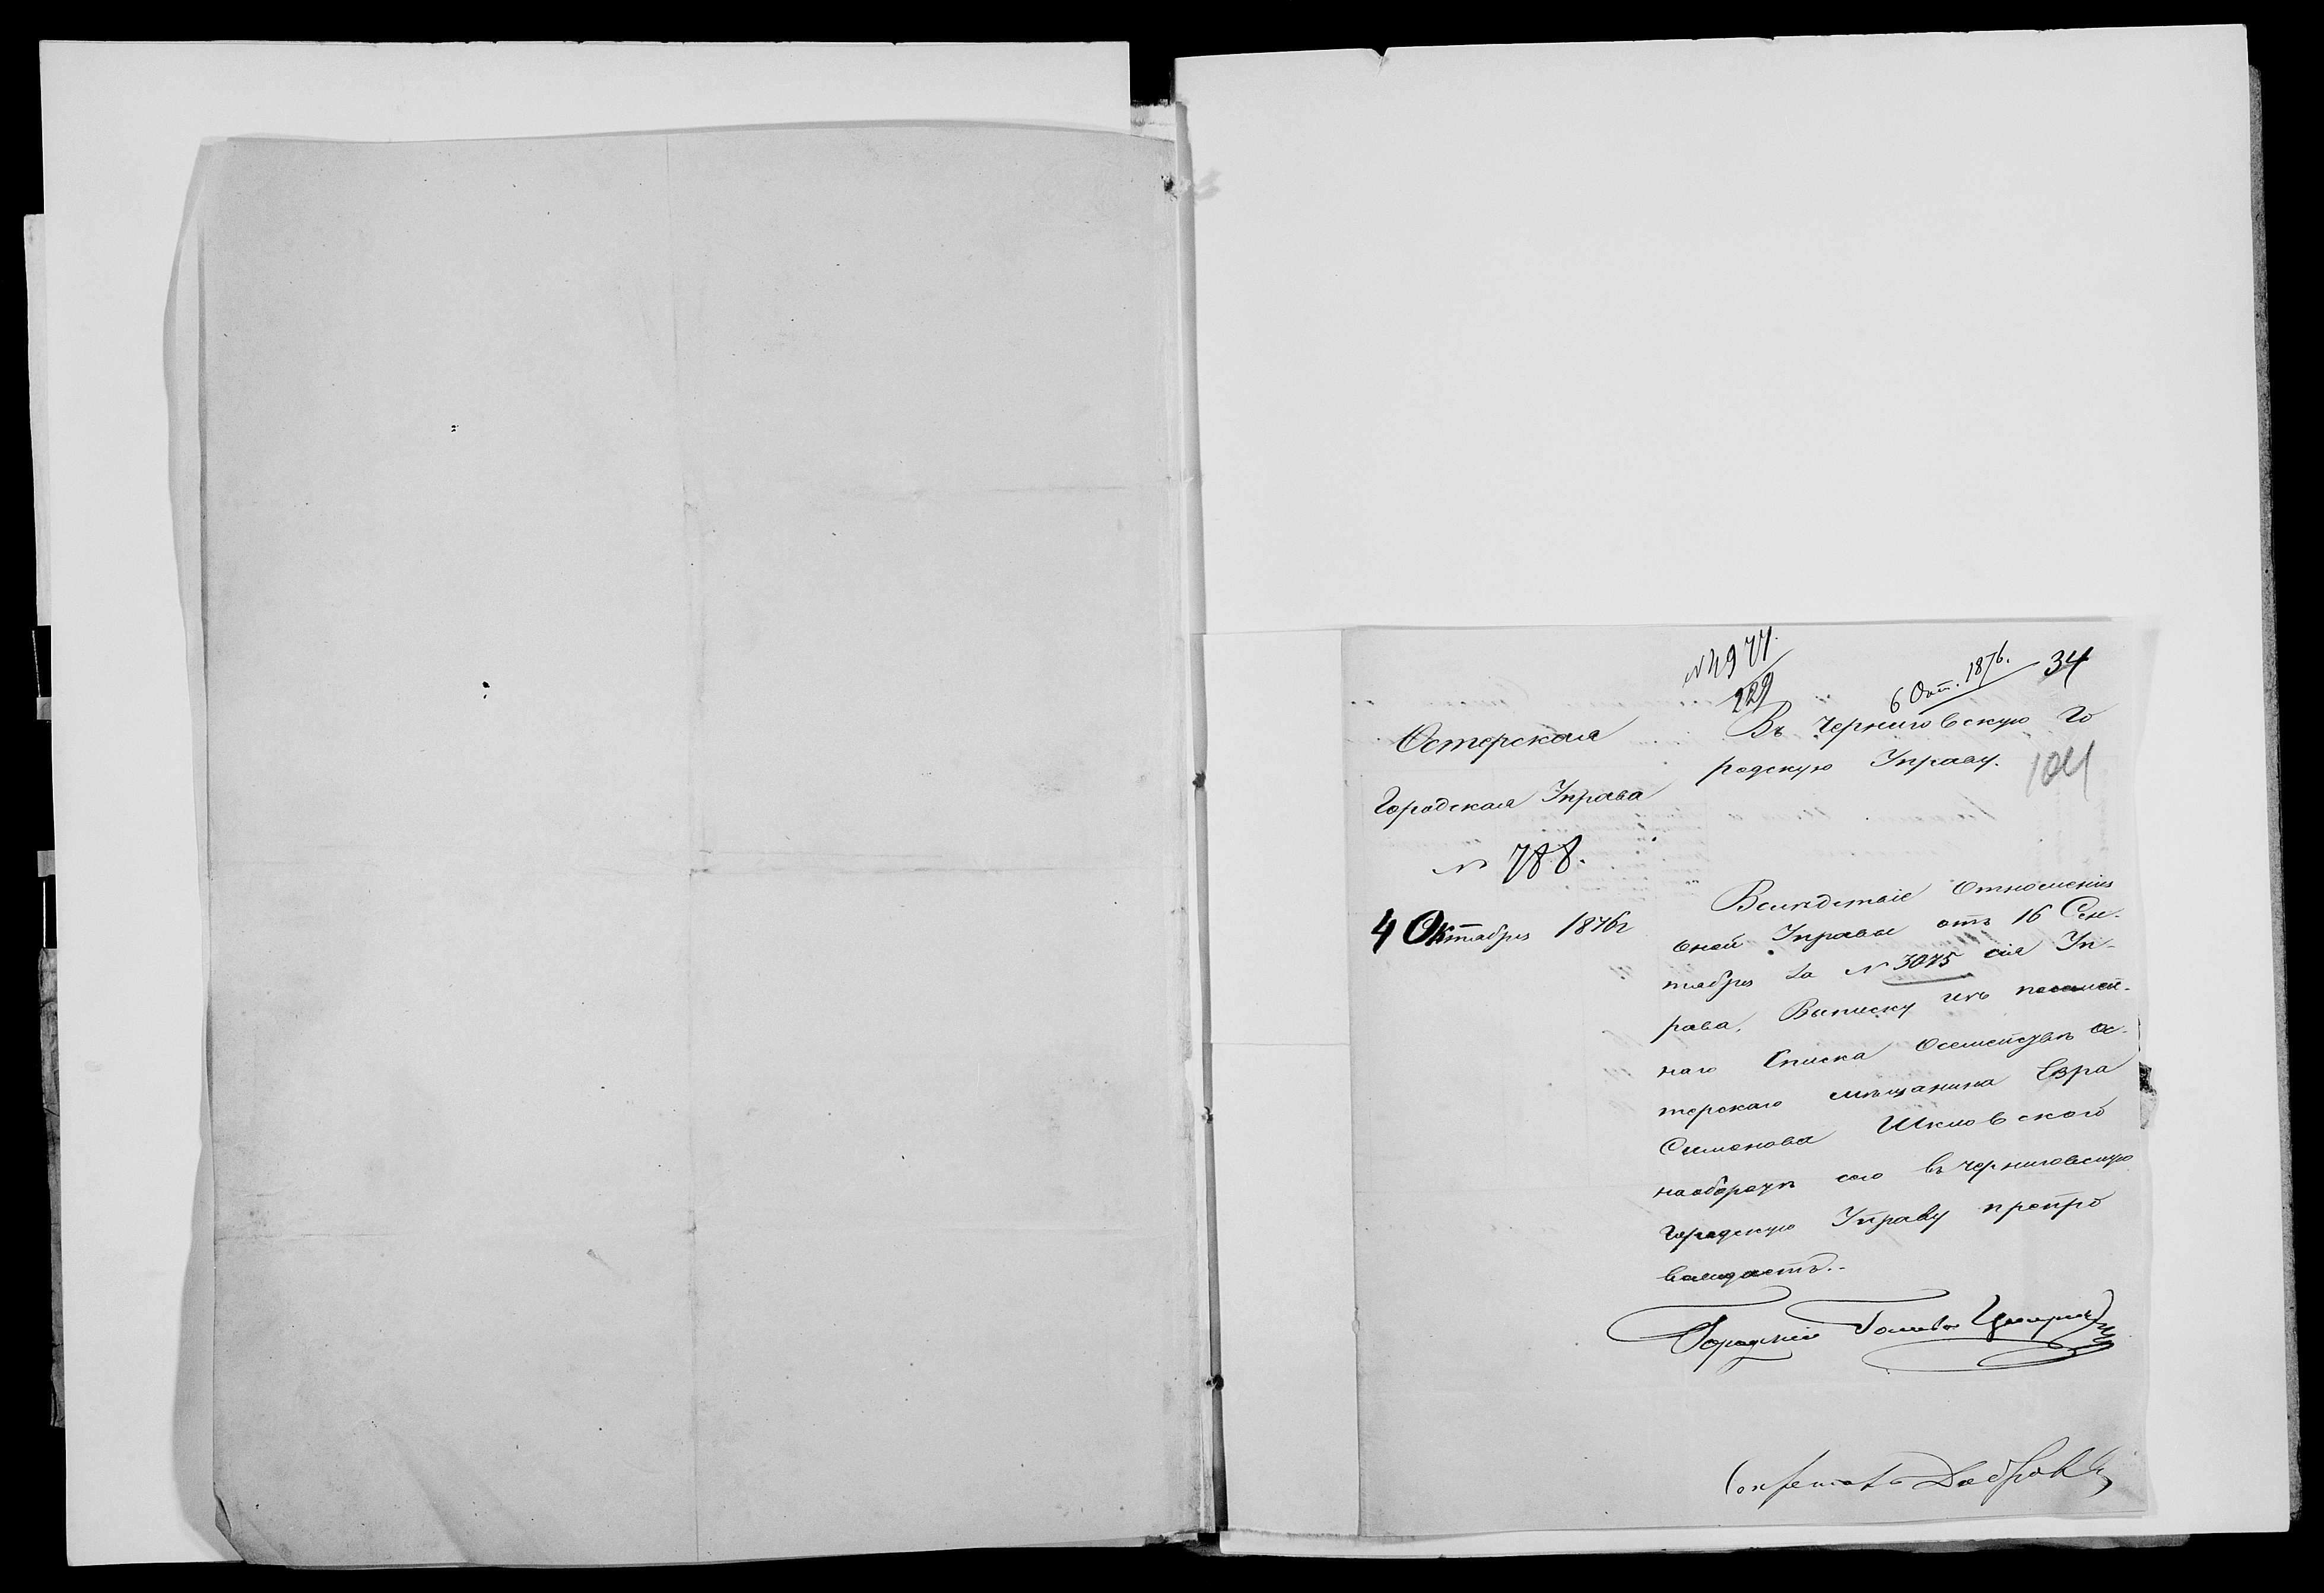 № 4977.
229
6 Окт. 1876.
34
Остерская
Городская Управа
№ 788.
4 Октября 1876 г
Въ Черниговскую Го
родскую Управу.
104
Вследствіе Отношенія
оной Управы отъ 16 Сен-
тября за № 3075 сія Уп-
рава, Выписку изъ посемей-
наго Списка Осемействѣ Ос-
терскаго мѣщанина Евра
Симонова Шкловского
наоборотѣ сего въ Черниговскую
Городскую Управу препро
вождаетъ.-
Городской Голова
Секретарь